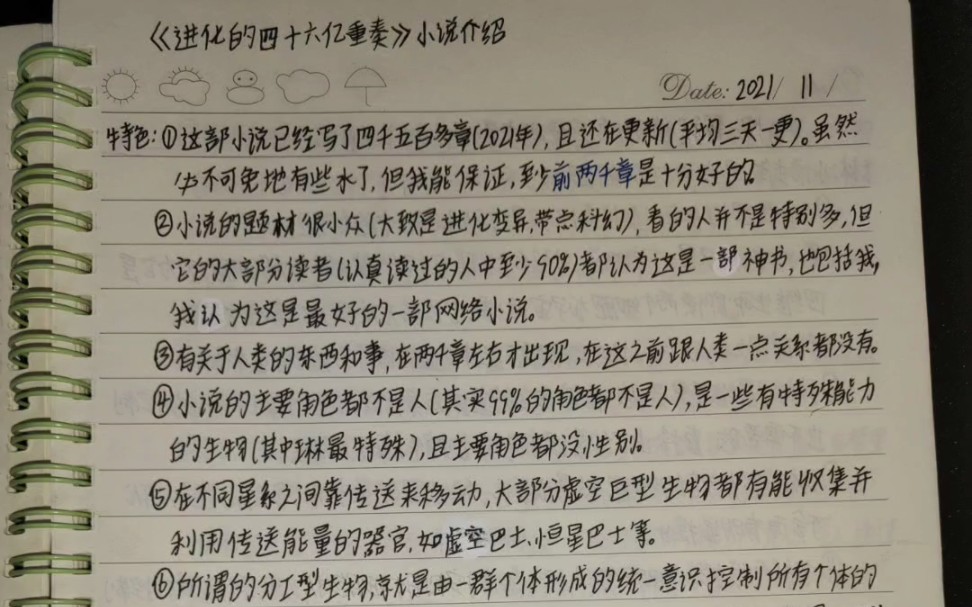 《进化的四十六亿重奏》小说介绍
Date: 2021/ 11 /
特色:①这部小说已经写了四千五百多章(2021年),且还在更新(平均三天一更)。虽然
必不可免地有些水了,但我能保证,至少前两千章是十分好的。
②小说的题材很小众(大致是进化变异,带点科幻),看的人并不是特别多,但
它的大部分读者(认真读过的人中至少90%)都认为这是一部神书,也包括我,
我认为这是最好的一部网络小说。
③有关于人类的东西和事,在两千章左右才出现,在这之前跟人类一点关系都没有。
④小说的主要角色都不是人(其实99%的角色都不是人),是一些有特殊能力
的生物(其中琳最特殊),且主要角色都没性别。
⑤在不同星系之间靠传送来移动,大部分虚空巨型生物都有能收集并
利用传送能量的器官,如虚空巴士、恒星巴士等。
⑥所谓的分工型生物,就是由一群个体形成的统一意识控制所有个体的